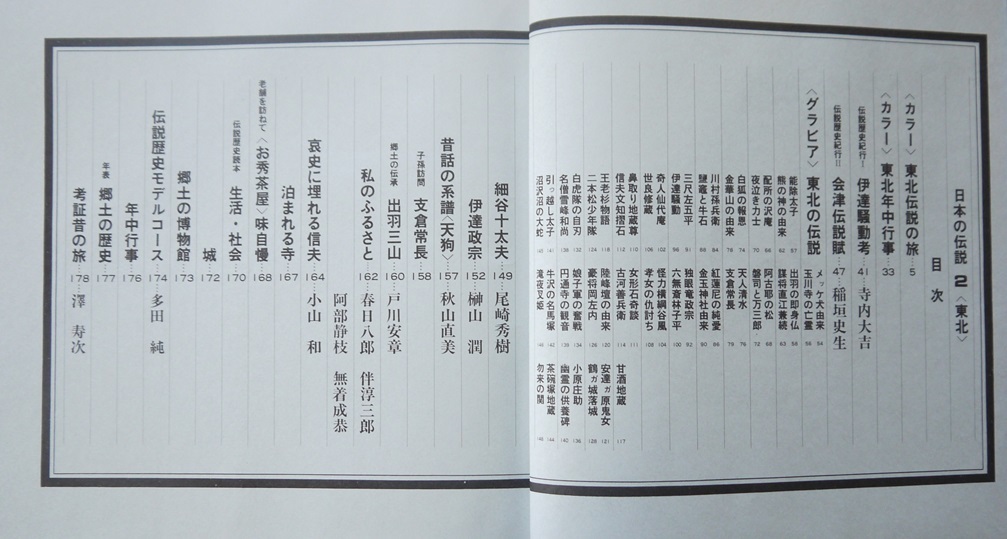 日本の伝説 2〈東北〉
目次
〈カラー〉東北伝説の旅…5
〈カラー〉東北年中行事…33
伝説歴史紀行Ⅰ 伊達騒動考…41…寺内大吉
伝説歴史紀行Ⅱ 会津伝説賦…47…稲垣史生
〈グラビア〉東北の伝説
メッケ犬由来 54
玉川寺の亡霊 56
能除太子 57
出羽の即身仏 58
熊の神の由来 62
謀将直江兼続 63
配所の沢庵 66
阿古耶の松 68
夜泣き力士 70
磐司と万三郎 72
白狐の報恩 74
天人清水 76
金華山の由来 78
支倉常長 79
川村孫兵衛 84
紅蓮尼の純愛 86
鹽竈と牛石 88
金玉神社由来 90
三尺左五平 91
独眼竜政宗 92
伊達騒動 96
六無斎林子平 100
奇人仙代庵 102
怪力横綱谷風 104
世良修蔵 106
孝女の仇討ち 108
鼻取り地蔵尊 110
女形石奇談 111
信夫文知摺石 112
古河善兵衛 114
甘酒地蔵 117
王老杉物語 118
陸峰壇の由来 120
安達ヶ原鬼女 121
二本松少年隊 124
豪将岡左内 126
鶴ガ城落城 128
白虎隊の自刃 132
娘子軍の奮戦 134
小原庄助 136
名僧雪峰和尚 138
円通寺の観音 139
幽霊の供養碑 140
引っ越し太子 141
牛沢の名馬塚 142
茶碗塚地蔵 144
沼沢沼の大蛇
滝夜叉姫
勿来の関
細谷十太夫…149…尾崎秀樹
伊達政宗…152…榊山 潤
昔話の系譜〈天狗〉…157…秋山直美
子孫訪問 支倉常長…158
郷土の伝承 出羽三山…160…戸川安章
私のふるさと…162…春日八郎 伴淳三郎
阿部静枝 無着成恭
哀史に埋れる信夫…164…小山 和
泊まれる寺…167
老舗を訪ねて〈お秀茶屋〉味自慢…168
伝説歴史読本 生活・社会…170
城…172
郷土の博物館…173
伝説歴史モデルコース…174…多田 純
年中行事…176
年表 郷土の歴史…177
考証昔の旅…178…澤 寿次